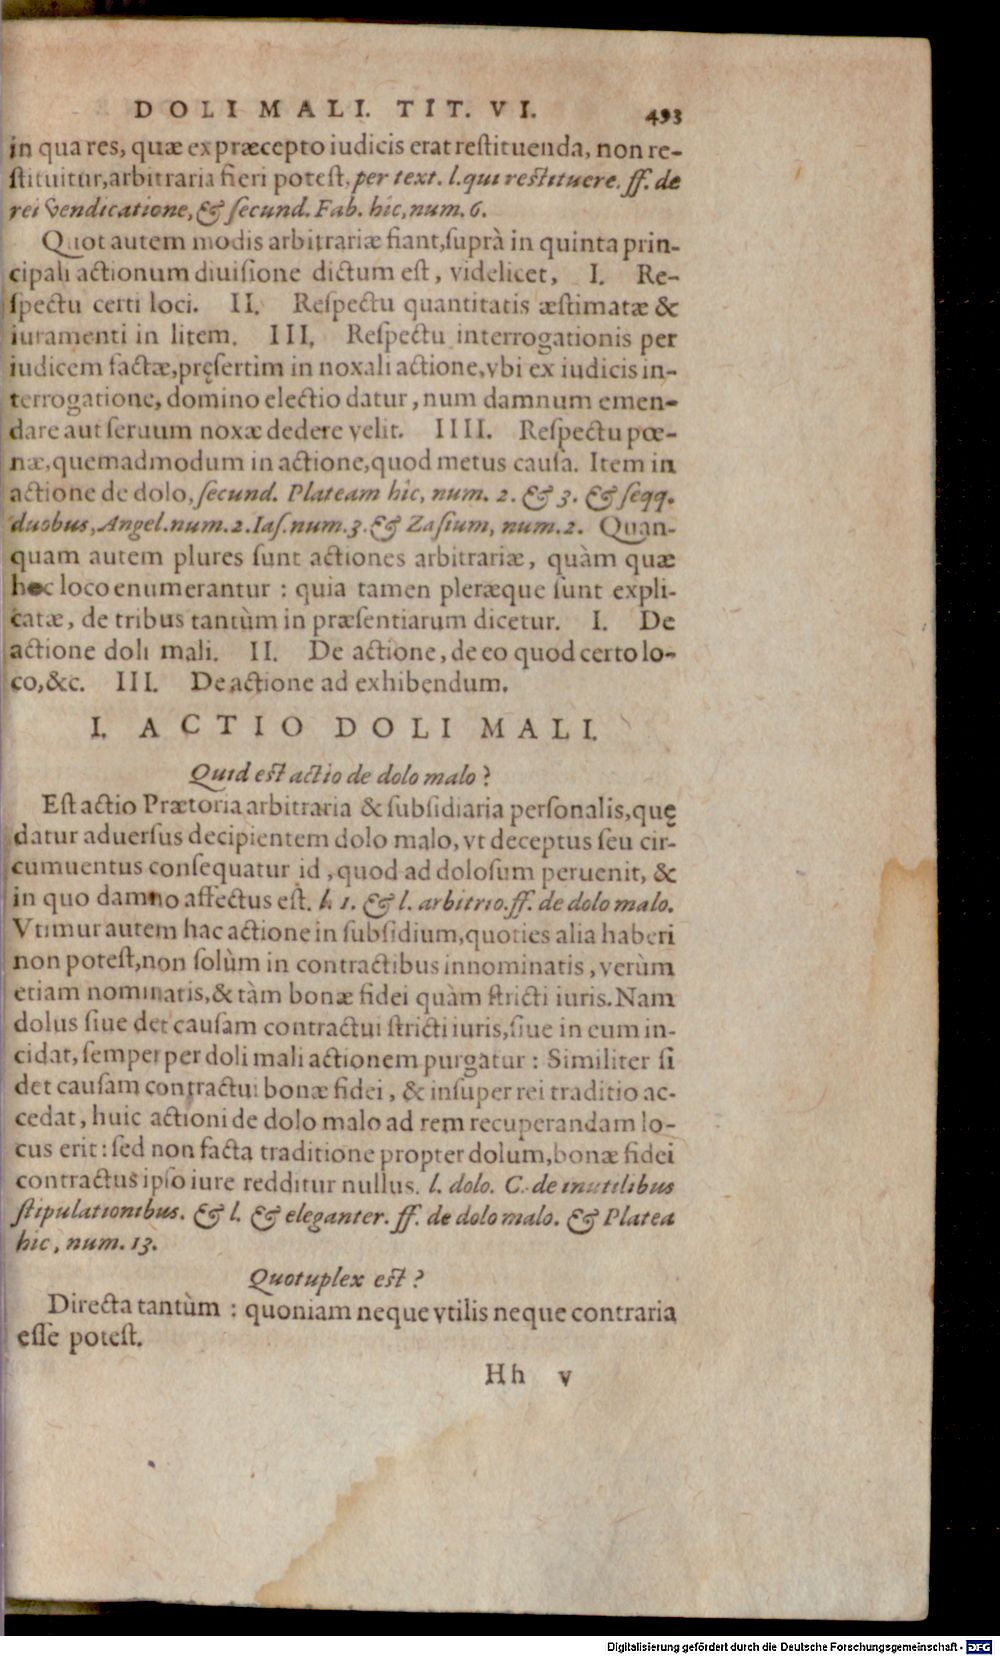 DOLI MALI. TIT. VI. 493
in qua res, quæ ex præcepto iudicis erat restituenda, non re-
stituitur, arbitraria fieri potest, per text. l. qui restituere. ff. de
rei vendicatione, & secund. Fab. hic, num. 6.
Quot autem modis arbitrariæ fiant, suprà in quinta prin-
cipali actionum diuisione dictum est, videlicet, I. Re-
spectu certi loci. II. Respectu quantitatis æstimatæ &
iuramenti in litem. III. Respectu interrogationis per
iudicem factæ, pręsertim in noxali actione, vbi ex iudicis in-
terrogatione, domino electio datur, num damnum emen-
dare aut seruum noxæ dedere velit. IIII. Respectu pœ-
næ, quemadmodum in actione, quod metus causa. Item in
actione de dolo, secund. Plateam hic, num. 2. & 3. & seqq.
duobus, Angel. num. 2. Ias. num. 3. & Zasium, num. 2. Quan-
quam autem plures sunt actiones arbitrariæ, quàm quæ
hoc loco enumerantur : quia tamen pleræque sunt expli-
catæ, de tribus tantùm in præsentiarum dicetur. I. De
actione doli mali. II. De actione, de eo quod certo lo-
co, &c. III. De actione ad exhibendum.
I. ACTIO DOLI MALI.
Quid est actio de dolo malo ?
Est actio Prætoria arbitraria & subsidiaria personalis, quę
datur aduersus decipientem dolo malo, vt deceptus seu cir-
cumuentus consequatur id, quod ad dolosum peruenit, &
in quo damno affectus est. l. 1. & l. arbitrio. ff. de dolo malo.
Vtimur autem hac actione in subsidium, quoties alia haberi
non potest, non solùm in contractibus innominatis, verùm
etiam nominatis, & tàm bonæ fidei quàm stricti iuris. Nam
dolus siue det causam contractui stricti iuris, siue in eum in-
cidat, semper per doli mali actionem purgatur : Similiter si
det causam contractui bonæ fidei, & insuper rei traditio ac-
cedat, huic actioni de dolo malo ad rem recuperandam lo-
cus erit : sed non facta traditione propter dolum, bonæ fidei
contractus ipso iure redditur nullus. l. dolo. C. de inutilibus
stipulationibus. & l. & eleganter. ff. de dolo malo. & Platea
hic, num. 13.
Quotuplex est ?
Directa tantùm : quoniam neque vtilis neque contraria
esse potest.
Hh v
Digitalisierung gefördert durch die Deutsche Forschungsgemeinschaft - DFG